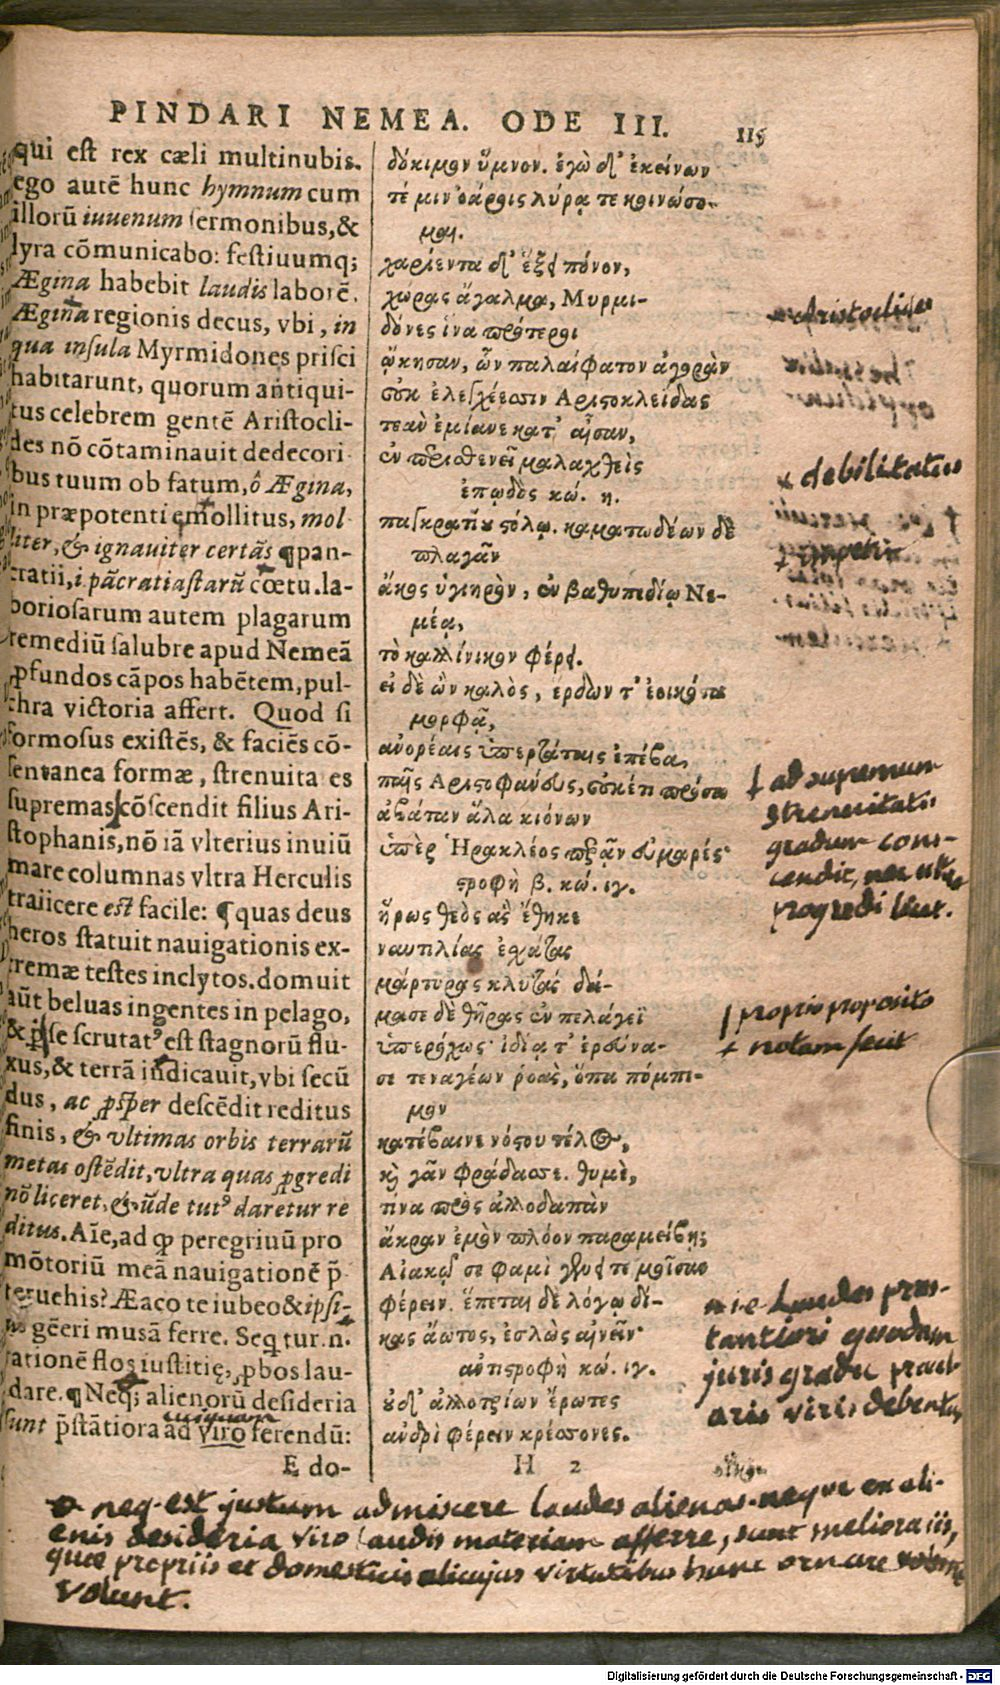 PINDARI NEMEA. ODE III. 115
qui est rex cæli multinubis.
ego autē hunc hymnum cum
illorū iuuenum sermonibus, &
lyra cōmunicabo: festiuumq;
Ægina habebit laudis laborē.
Ægina regionis decus, vbi, in
qua insula Myrmidones prisci
habitarunt, quorum antiqui-
tus celebrem gentē Aristocli-
des nō cōtaminauit dedecori
bus tuum ob fatum, ô Ægina,
in præpotenti emollitus, mol
liter, & ignauiter certās ¶pan-
cratii, i pācratiastarū cœtu. la-
boriosarum autem plagarum
remediū salubre apud Nemeā
ꝓfundos cāpos habētem, pul-
chra victoria affert. Quod si
formosus existēs, & faciēs cō-
sentanea formæ, strenuitates
supremas cōscendit filius Ari-
stophanis, nō iā vlterius inuiū
mare columnas vltra Herculis
traiicere est facile: ¶quas deus
heros statuit nauigationis ex-
tremæ testes inclytos. domuit
aūt beluas ingentes in pelago,
& ipse scrutatꝰ est stagnorū flu-
xus, & terrā indicauit, vbi secū
dus, ac ꝓsper descēdit reditus
finis, & vltimas orbis terrarū
metas ostēdit, vltra quas ꝓgredi
nō liceret, & ūde tutꝰ daretur re
ditus. Aīe, ad qđ peregrinū pro
mōtoriū meā nauigationē p̄
teruehis? Æaco te iubeo & ipsi-
us gēeri musā ferre. Seqtur. n.
rationē flos iustitię, ꝓbos lau-
dare. ¶Neq; alienorū desideria
cuiquam
sunt p̄stātiora ad viro ferendū:
E do-
δόκιμον ὕμνον. ἐγὼ δ' ἐκείνων
τέ μιν ὀάροις λύρᾳ τε κοινώσο-
μαι.
χαρίεντα δ' ἕξει πόνον,
χώρας ἄγαλμα, Μυρμι-
δόνες ἵνα πρότεροι
ᾤκησαν, ὧν παλαίφατον ἀγορὰν
οὐκ ἐλεγχέεσσιν Αριστοκλείδας
τεὰν ἐμίανε κατ' αἶσαν,
ἐν περισθενεῖ μαλαχθεὶς
ἐπῳδὸς κώ. η.
παγκρατίου στόλῳ. καματωδέων δὲ
πλαγᾶν
ἄκος ὑγιηρὸν, ἐν βαθυπεδίῳ Νε-
μέᾳ,
τὸ καλλίνικον φέρει.
εἰ δὲ ὢν καλὸς, ἔρδων τ' ἐοικότα
μορφᾷ,
ἀνορέαις ὑπερτάταις ἐπέβα,
παῖς Αριστοφάνους, οὐκέτι πρόσω
ἀβάταν ἅλα κιόνων
ὑπὲρ Ἡρακλέος περᾶν εὐμαρές·
στροφὴ β. κώ. ιγ.
ἥρως θεὸς ἃς ἔθηκε
ναυτιλίας ἐσχάτας
μάρτυρας κλυτάς· δά-
μασε δὲ θῆρας ἐν πελάγεϊ
ὑπερόχως· ἰδίᾳ τ' ἐρεύνα-
σε τεναγέων ῥοὰς, ὅπα πόμπι-
μον
κατέβαινε νόστου τέλος,
καὶ γᾶν φράδασσε. θυμὲ,
τίνα πρὸς ἀλλοδαπὰν
ἄκραν ἐμὸν πλόον παραμείβῃς;
Αἰακῷ σε φαμὶ γένει τε μοῖσαν
φέρειν. ἕπεται δὲ λόγῳ δί-
κας ἄωτος, ἐσλὸς αἰνεῖν·
ἀντιστροφὴ κώ. ιγ.
οὐδ' ἀλλοτρίων ἔρωτες
ἀνδρὶ φέρειν κρέσσονες.
H 2 οἴκο-
Aristoclides
x debilitatus
† ad supremum
strenuitatis
gradum cons-
cendit, nec ultra
progredi licet.
† proprio proposito
+ notam fecit
i-e Laudes præs-
tantiori quodam
juris gradu præcl-
aris viris debentur,
neq. est justum admiscere laudes alienas. neque ex ali-
enis desideria viro laudis materiam afferre, sunt meliora iis,
quæ propriis et domesticis alicujus virtutibus hunc ornare
volunt.
Digitalisierung gefördert durch die Deutsche Forschungsgemeinschaft - DFG